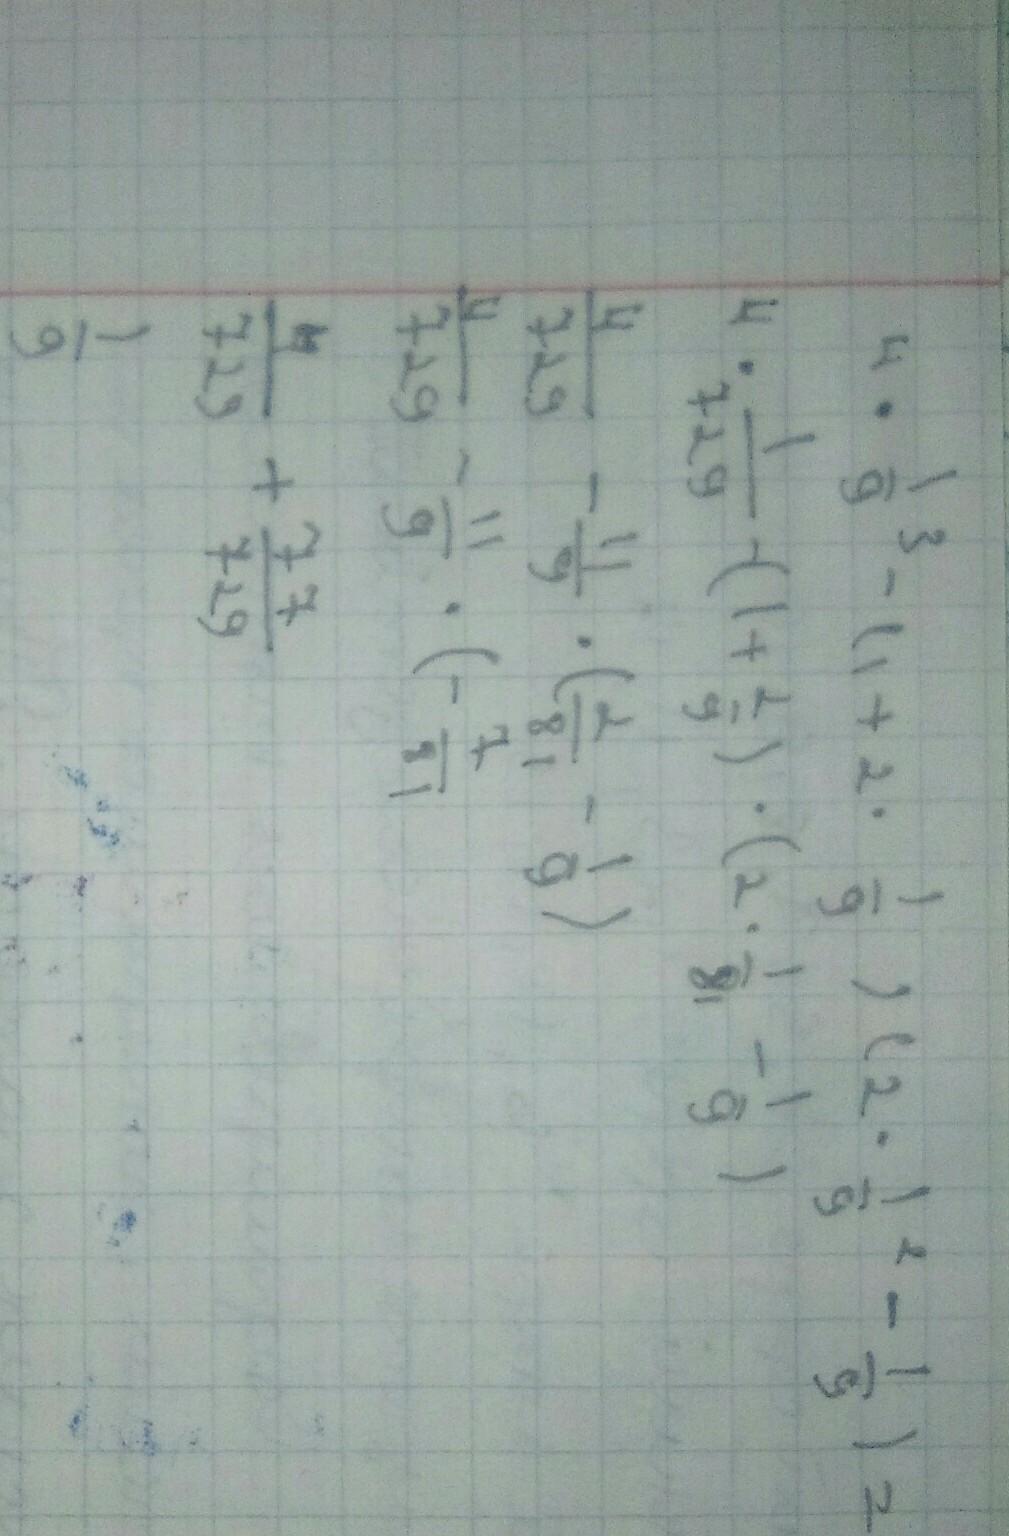 4 · 1/9 ³ - (1 + 2 · 1/9 ) (2 · 1/9 ² - 1/9 ) =
4 · 1/729 - (1 + 2/9) · (2 · 1/81 - 1/9 )
4/729 - 11/9 · (2/81 - 1/9 )
4/729 - 11/9 · (- 7/81
4/729 + 77/729
1/9